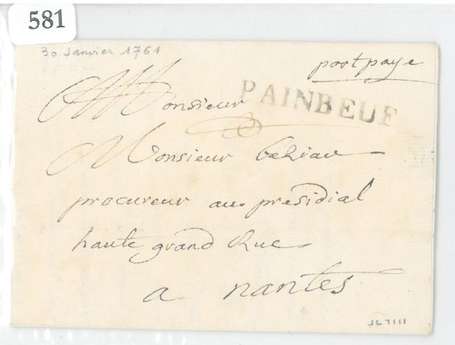 581
30 Janvier 1761
port payé
PAINBEUF
Monsieur
Monsieur
procureur au presidial
haute grand Rue
a nantes